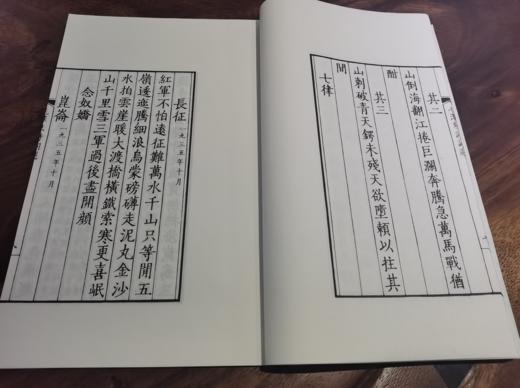 其二
山倒海翻江捲巨瀾奔騰急萬馬戰猶
酣
其三
山刺破青天鍔未殘天欲墮賴以拄其
間
七律
長征 一九三五年十月
紅軍不怕遠征難萬水千山只等閒五
嶺逶迤騰細浪烏蒙磅礴走泥丸金沙
水拍雲崖暖大渡橋橫鐵索寒更喜岷
山千里雪三軍過後盡開顏
念奴嬌
崑崙 一九三五年十月